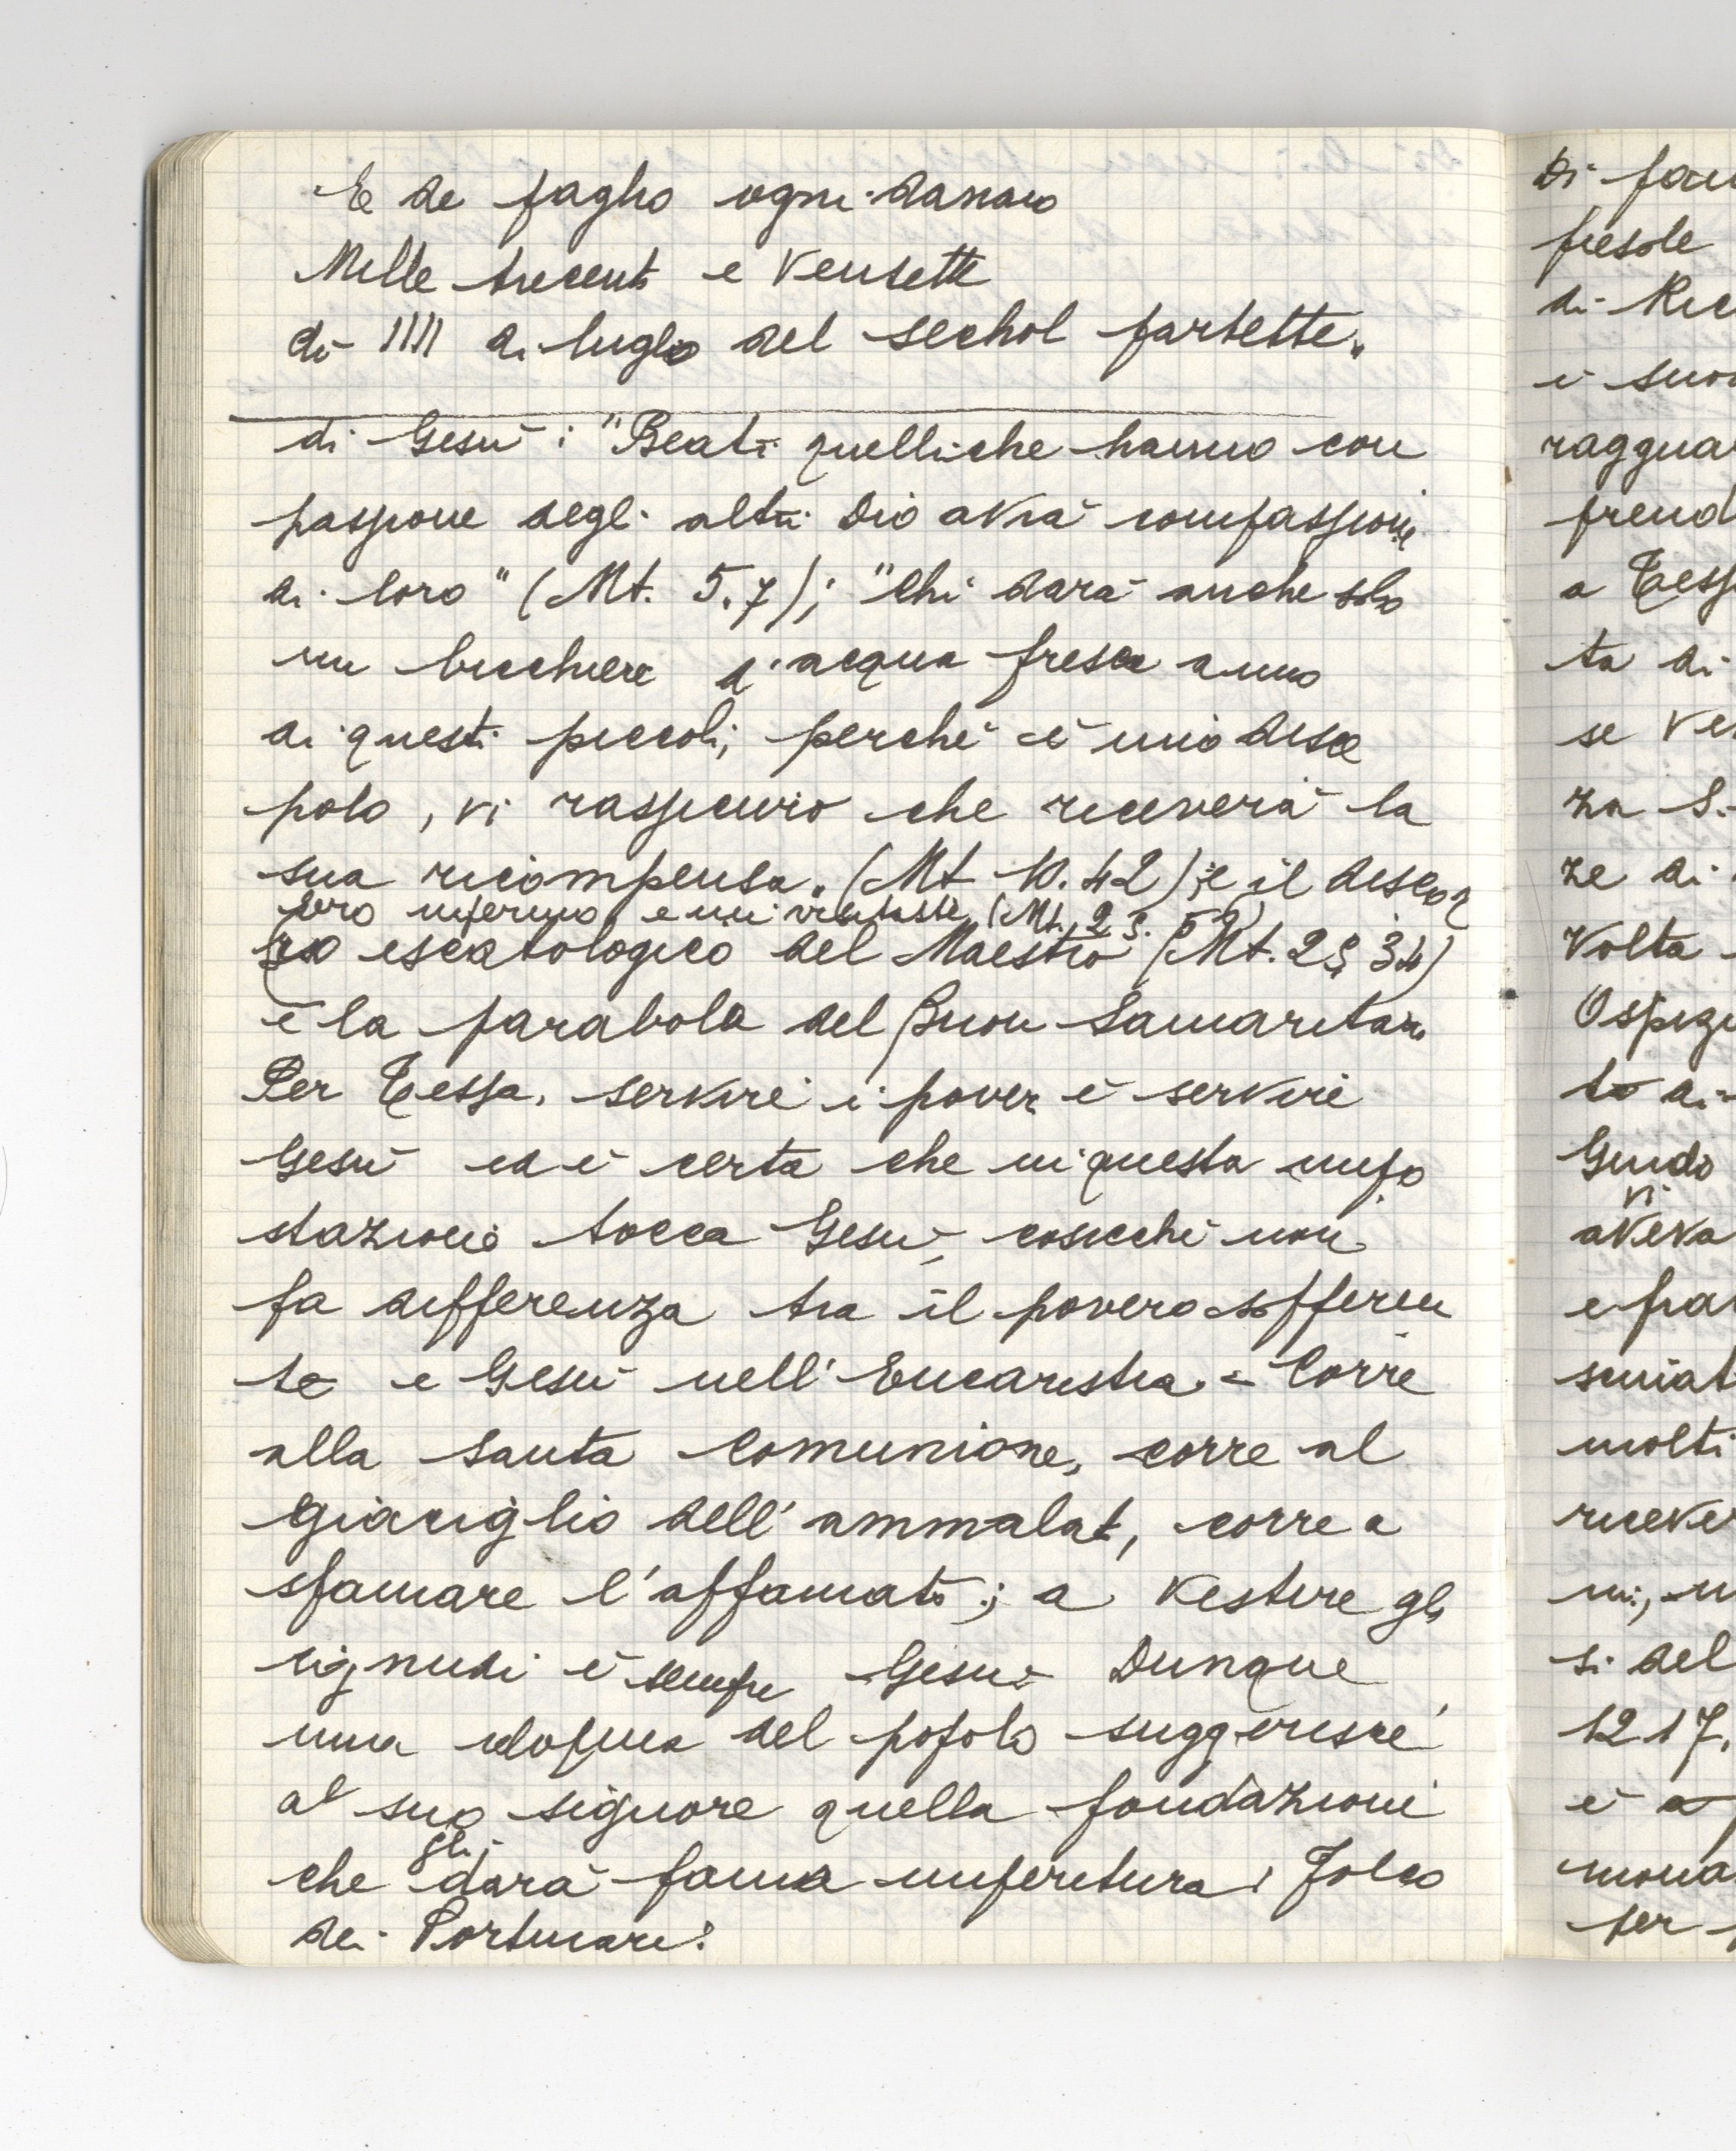 E de pagho ogni danaro
Mille trecent e Vensette
di IIII di luglio del sechol partette.
di Gesù: "Beati quelli che hanno con
passione degli altri Dio avrà compassione
di loro" (Mt. 5.7); "Chi darà anche solo
un bicchiere d'acqua fresca a uno
di questi piccoli, perchè è mio disce
polo, vi rassicuro che riceverà la
sua ricompensa. (Mt 10.42); e il discor
ero infermo e mi visitaste (Mt.
so escatologico del Maestro (Mt. 25 34)
e la parabola del Buon Samaritano
Per Tessa, servire i poveri è servire
Gesù ed è certa che in questa
stazione tocca Gesù, cosicchè non
fa differenza tra il povero sofferen
te e Gesù nell'Eucarestia = Corre
alla Santa Comunione, corre al
giaciglio dell'ammalat, corre a
sfamare l'affamato; a vestire gli
ignudi è sempre Gesù. Dunque
una del popolo suggerisce
al suo signore quella fondazione
che gli darà fama imperitura: Folco
dei Portinari.
Di
fiesole
di Ric
è suo
raggua
prend
a Tess
ta di
se Ve
za S.
ze di
Volta
Ospizi
to di
Guido
vi
aveva
e
molti
si del
1217.
è
mona
per